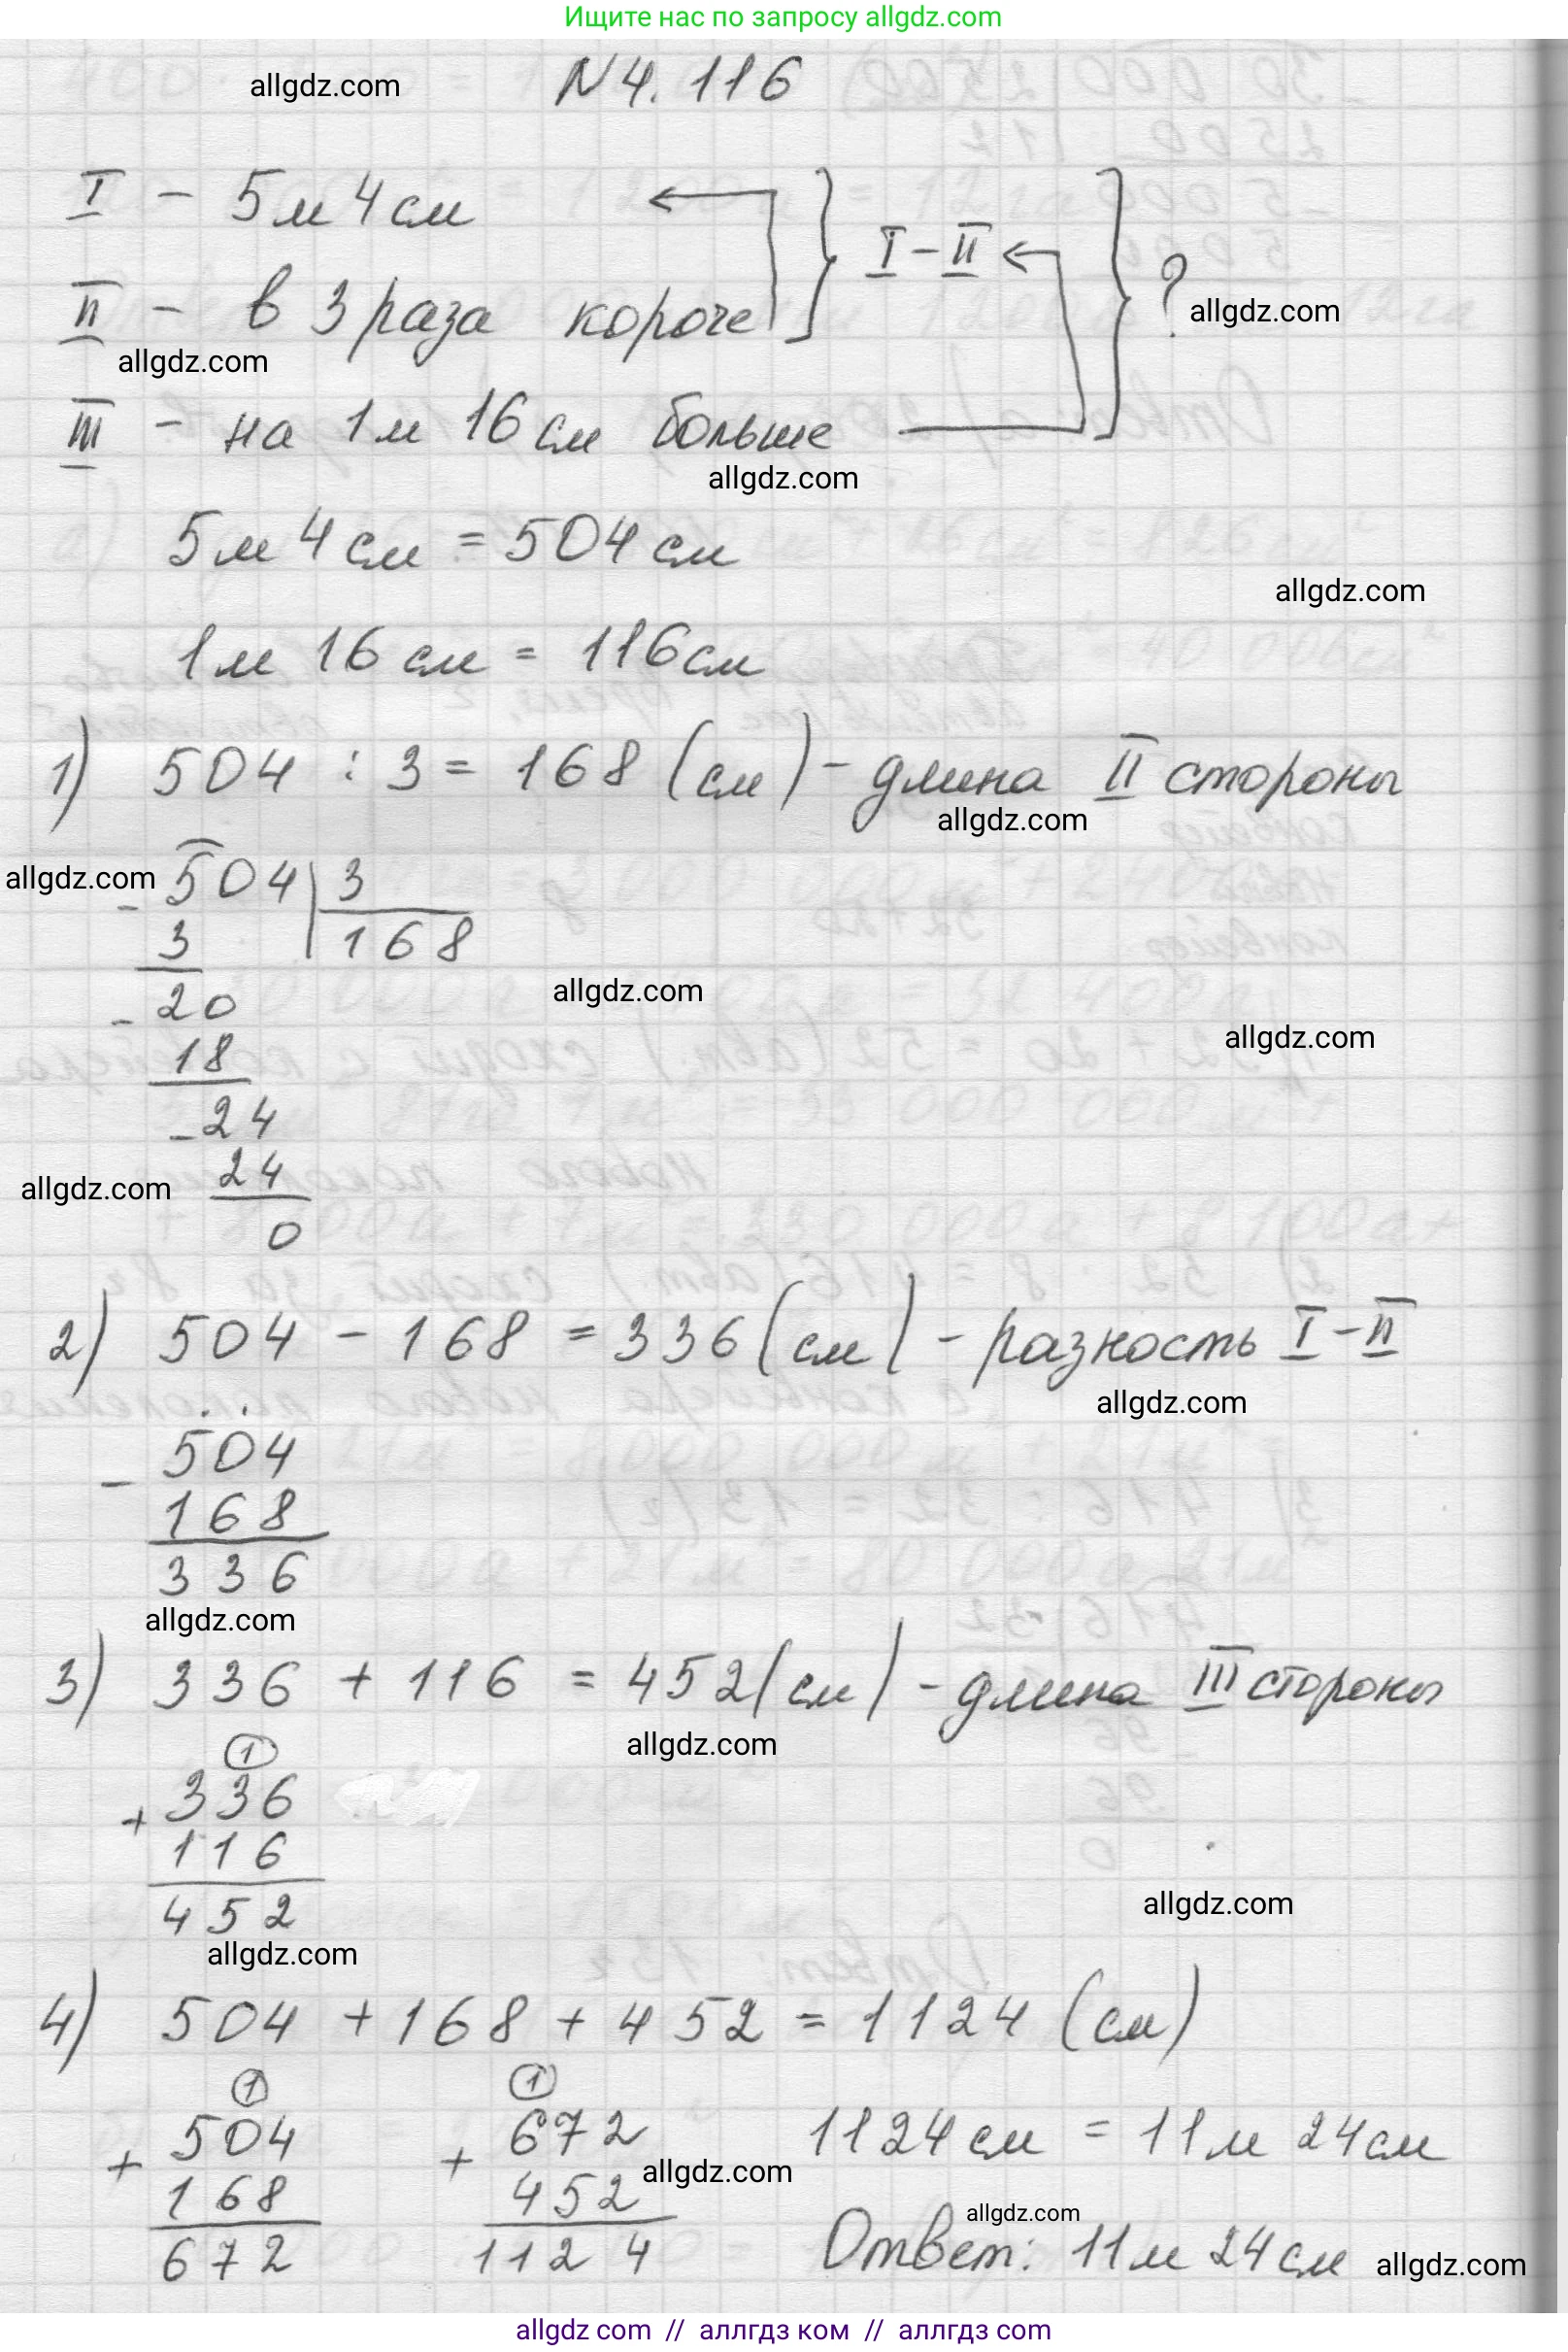 Ищите нас по запросу allgdz.com
allgdz.com
N 4. 116
I - 5м 4см
I - II
?
allgdz.com
II - в 3 раза короче
allgdz.com
III - на 1м 16 см больше
allgdz.com
5м 4 см = 504 см
allgdz.com
1м 16 см = 116см
1) 504 : 3 = 168 (см) - длина II стороны
allgdz.com
allgdz.com
- 504 | 3
3 | 168
- 20
allgdz.com
18
allgdz.com
- 24
24
allgdz.com
0
2) 504 - 168 = 336 (см) - разность I - II
allgdz.com
- 504
168
336
allgdz.com
3) 336 + 116 = 452 (см) - длина III стороны
allgdz.com
1
+ 336
116
452
allgdz.com
allgdz.com
4) 504 + 168 + 452 = 1124 (см)
1 1
+ 504 + 672 1124 см = 11м 24см
168 452
allgdz.com
672 1124
allgdz.com
Ответ: 11м 24см
allgdz.com
allgdz com // аллгдз ком // аллгдз com